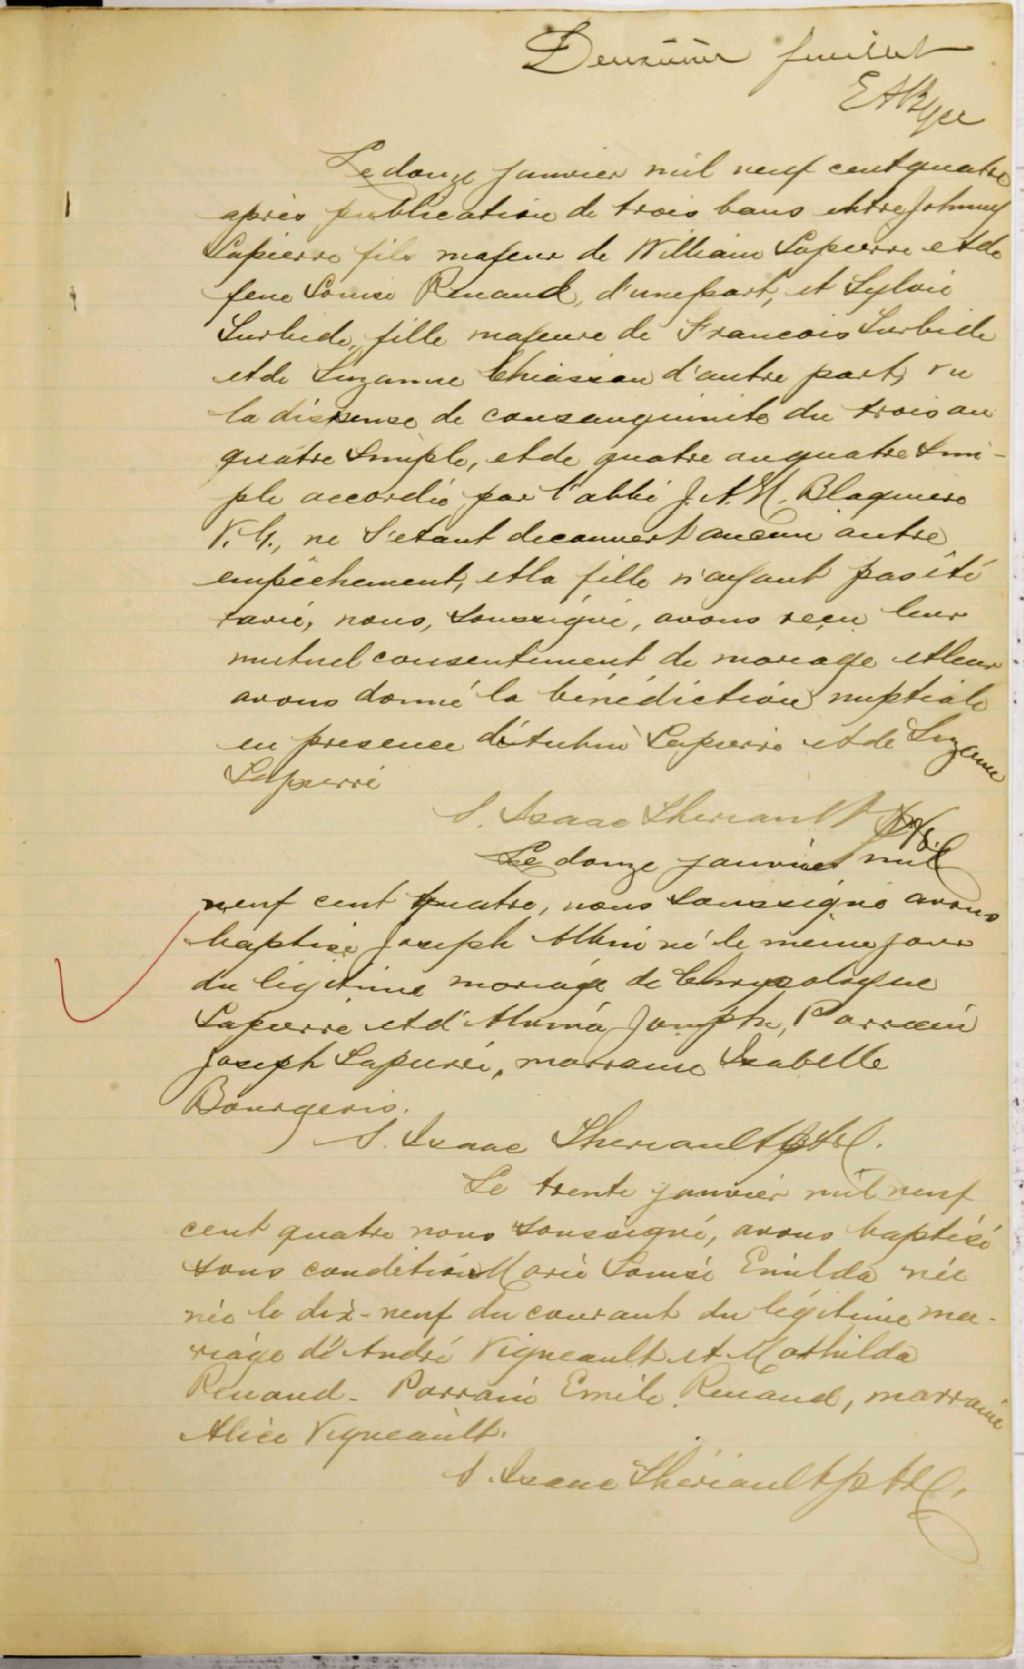 Deuxième feuillet
Le douze janvier mil neuf cent quatre
après publication de trois bans entre Johnny
Lapierre fils majeur de William Lapierre et de
feue Louise Renaud, d'une part, et Sylvie
Turbide, fille majeure de Francois Turbide
et de Suzanne Chiasson d'autre part, vu
la dispense de consanguinité du trois au
quatre simple, et de quatre au quatre sim-
ple accordée par l'abbé J. A. M. Blaquiere
V. G., ne s'etant decouvert aucun autre
empêchement, et la fille n'ayant pas été
ravie, nous, soussigné, avons reçu leur
mutuel consentement de mariage et leur
avons donné la bénédiction nuptiale
en presence d'Arthur Lapierre et de Suzanne
Lapierre
S. Isaac Theriault ptre.
Le douze janvier mil
neuf cent quatre, nous soussigné avons
baptisé Joseph né le meme jour
du légitime mariage de Chrysologue
Lapierre et d'Alvina Josephe, Parrain
Joseph Lapierre, marraine Isabelle
Bourgeois.
S. Isaac Theriault ptre.
Le trente janvier mil neuf
cent quatre nous soussigné, avons baptisé
sous condition Marie Louise Emilda née
née le dix-neuf du courant du légitime ma-
riage d'André Vigneault et Mathilda
Renaud - Parrain Emile Renaud, marraine
Alice Vigneault.
S. Isaac Thériault ptre.